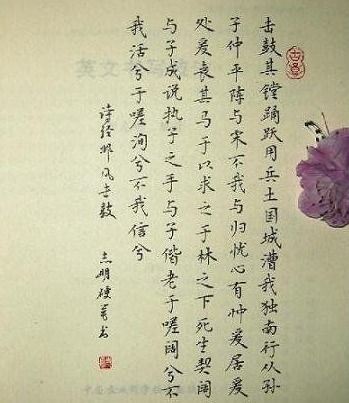 击鼓其镗踊跃用兵土国城漕我独南行从孙
子仲平陈与宋不我与归忧心有忡爰居爰
处爰丧其马于以求之于林之下死生契阔
与子成说执子之手与子偕老于嗟阔兮不
我活兮于嗟洵兮不我信兮
诗经邶风击鼓
志明硬笔书